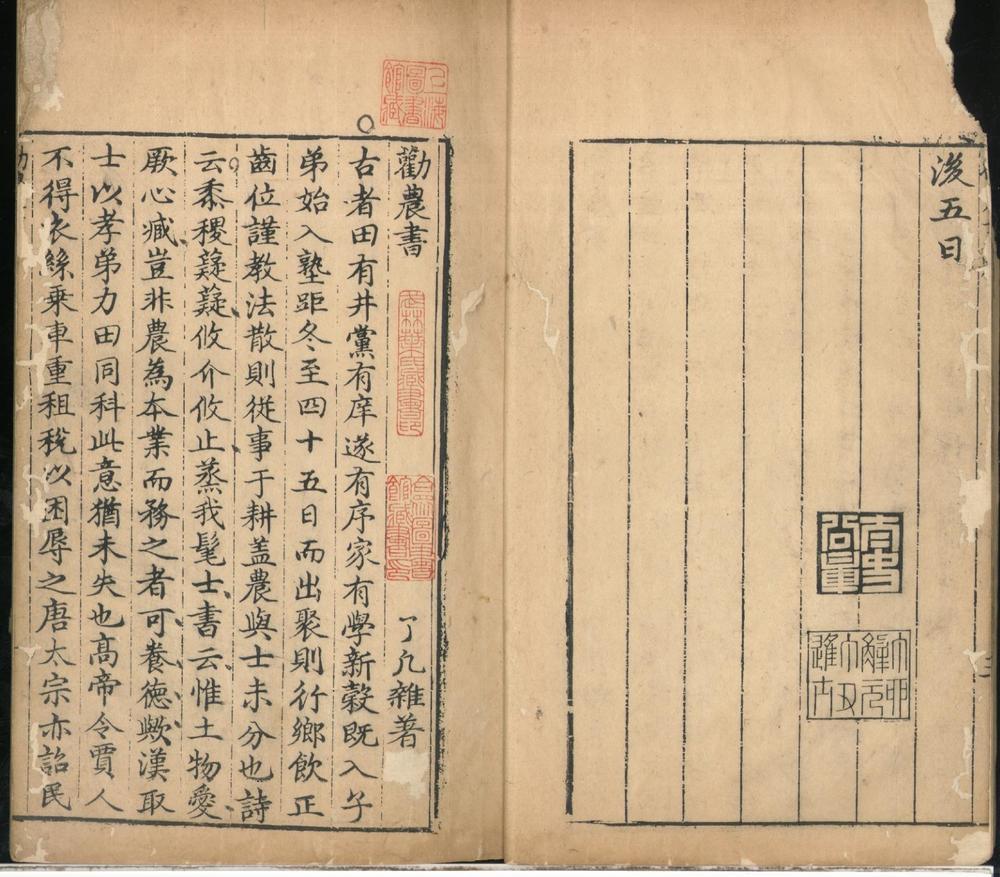 後五日
勸農書
了凡雜著
古者田有井黨有庠遂有序家有學新穀既入子
弟始入塾距冬至四十五日而出聚則行鄉飲正
齒位謹教法散則從事于耕蓋農與士未分也詩
云黍稷薿薿攸介攸止蒸我髦士書云惟土物愛
厥心臧豈非農為本業而務之者可養德歟漢取
士以孝弟力田同科此意猶未失也高帝令賈人
不得衣絲乘車重租稅以困辱之唐太宗亦詔民